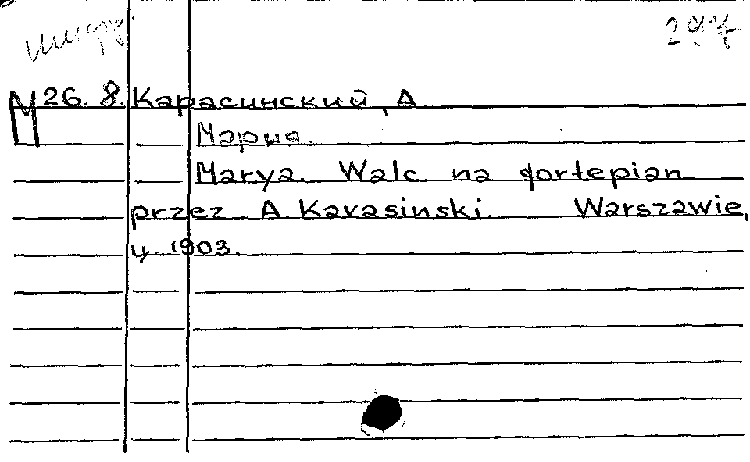 шифр 297
М 26. 8. Карасинский, А
Мария.
Marya. Walc na fortepian
przez A Karasinski. Warszawie,
ц 1903.